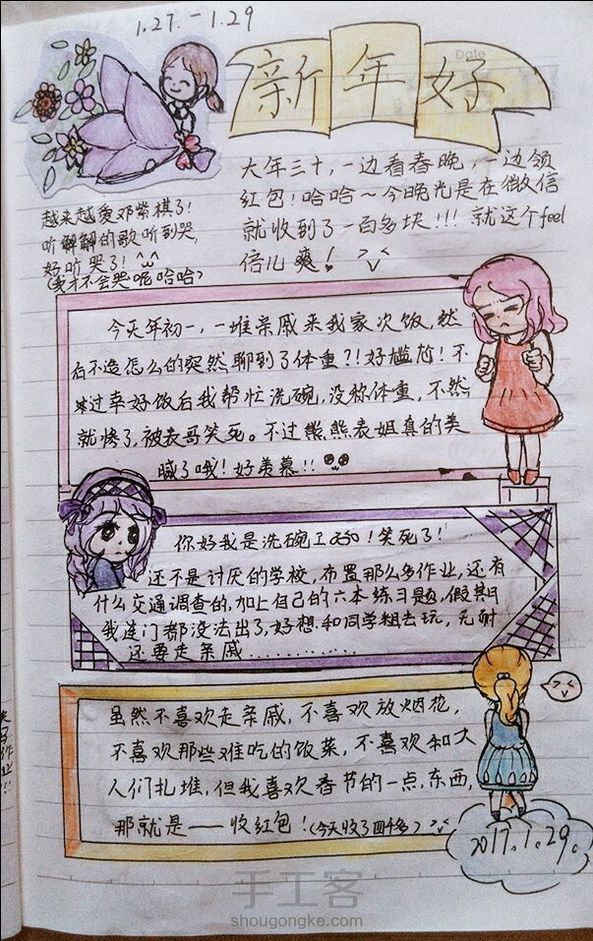 1.27.-1.29
新年好
Date
大年三十，一边看春晚，一边领
红包！哈哈～今晚光是在微信
就收到了一百多块!!! 就这个feel
倍儿爽！
越来越爱邓紫棋了！
听解解的歌听到哭，
好听哭了！
(我才不会哭呢哈哈)
今天年初一，一堆亲戚来我家次饭，然
后不造怎么的突然聊到了体重?!好尴尬！不
过幸好饭后我帮忙洗碗，没称体重，不然
就惨了，被表哥笑死。不过熊熊表姐真的美
腻了哦！好羡慕!!
你好我是洗碗工250！笑死了！
还不是讨厌的学校，布置那么多作业，还有
什么交通调查的，加上自己的六本练习题，假其日
我连门都没法出了，好想和同学粗去玩，无耐
还要走亲戚............
虽然不喜欢走亲戚，不喜欢放烟花，
不喜欢那些难吃的饭菜，不喜欢和大
人们扎堆，但我喜欢春节的一点，东西，
那就是——收红包！(今天收了四千多)
2017.1.29.
手工客
shougongke.com